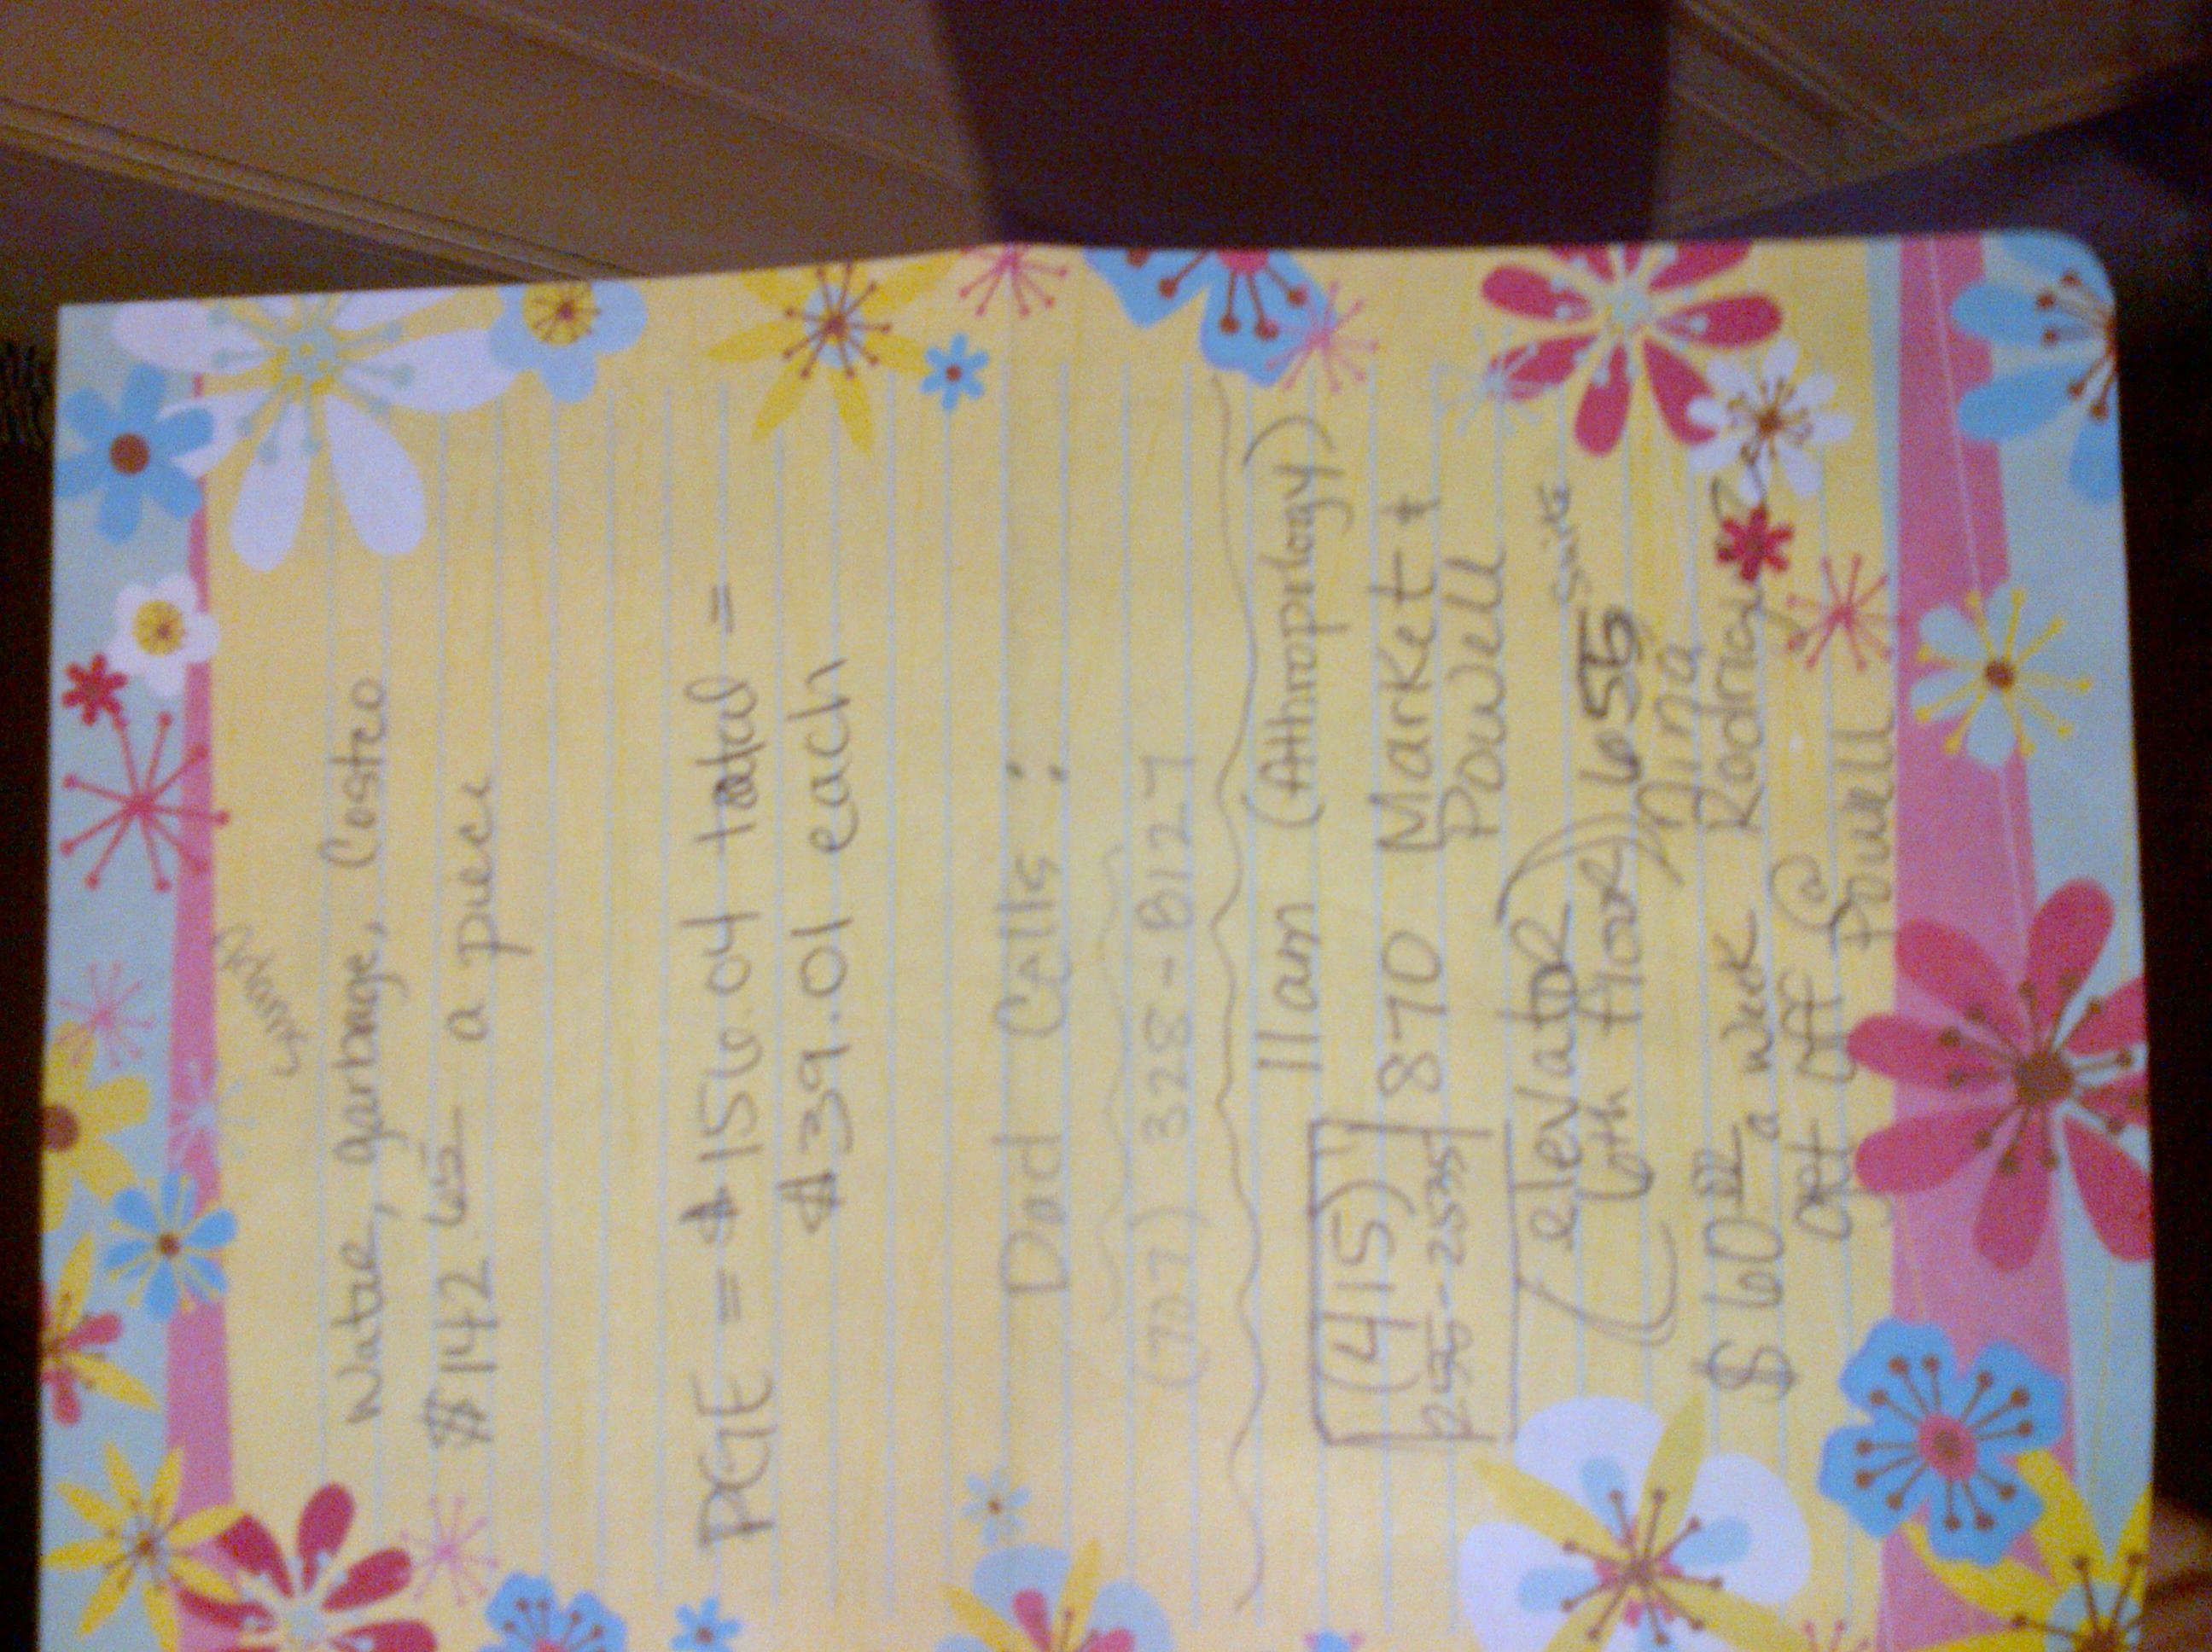 Water, garbage, Costco
$142.65 a piece
PGE = $156.04 total =
$39.01 each
Dad Calls:
(727) 328-8127
11am (Athroprlogy)
(415) 870 Market &
255-2535 Powell
elevator Suite
6th floor) 655
Nina
$60.00 a week Rodriguez
get off @
Powell